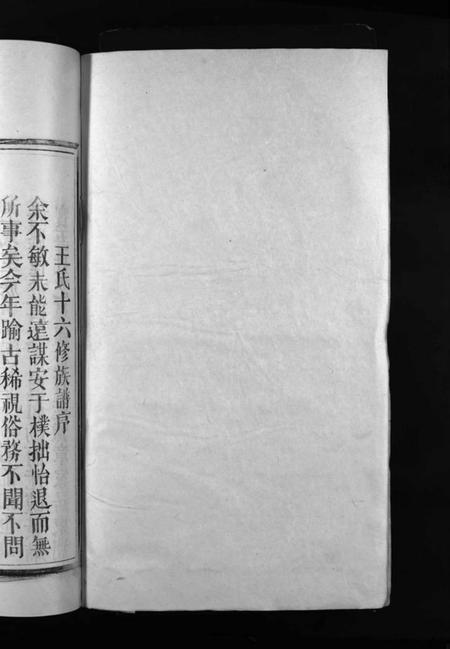 王氏十六修族譜序
余不敏未能遠謀安于樸拙怡退而無
所事矣今年踰古稀視俗務不聞不問